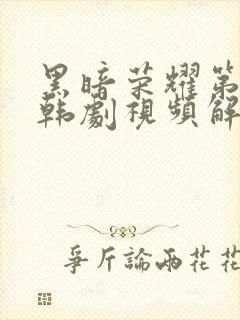 黑暗荣耀第
韩劇視頻解
爭斤論兩花花